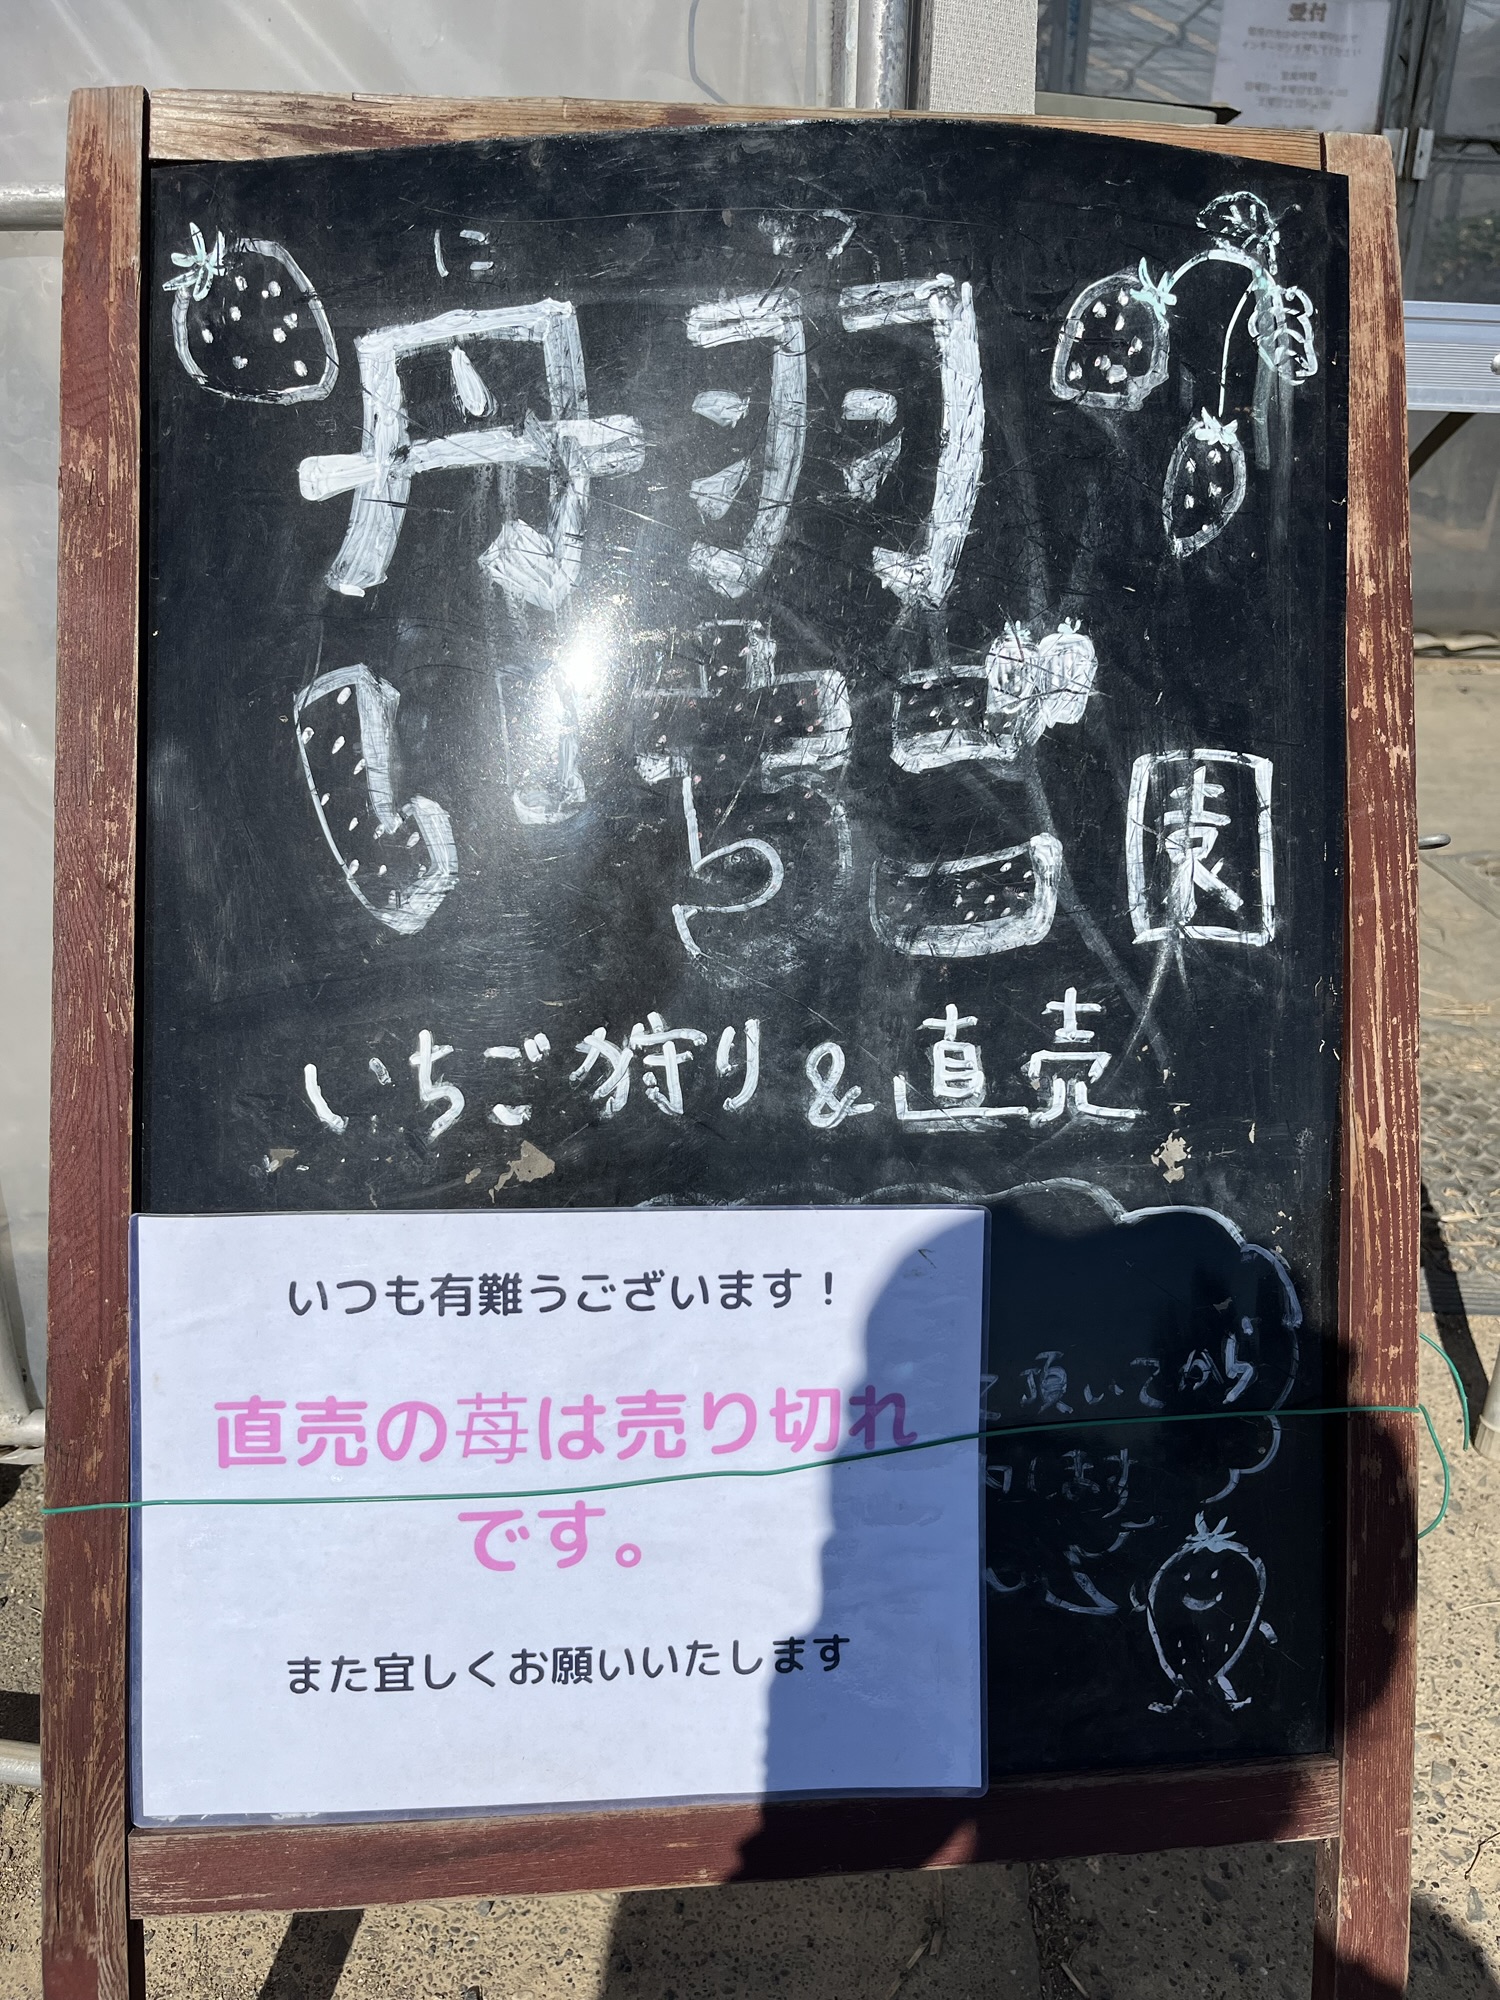 受付
に
丹羽
いちご園
いちご狩り&直売
いつも有難うございます!
直売の苺は売り切れ
です。
また宜しくお願いいたします
て頂いてから
します